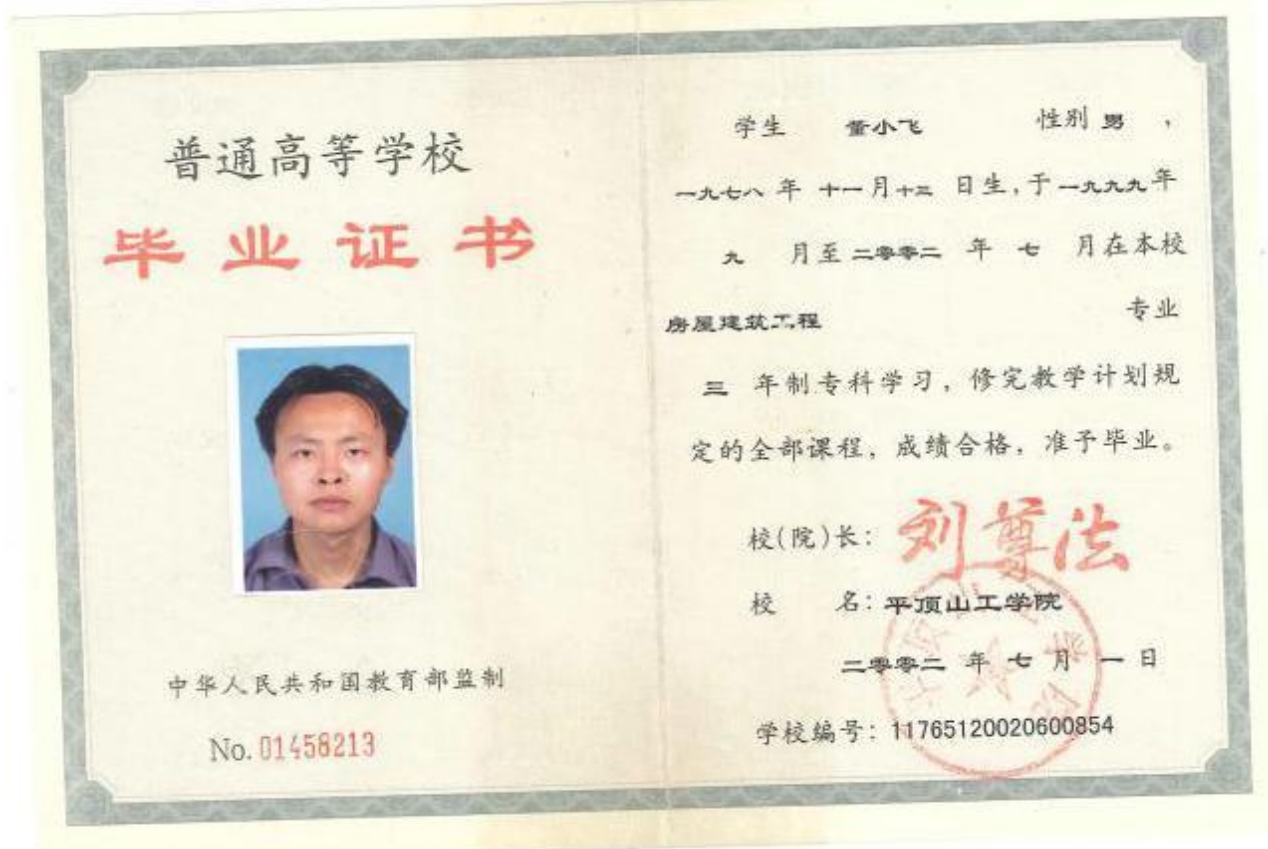 普通高等学校
毕业证书
中华人民共和国教育部监制
No. 01458213
学生 董小飞 性别 男 ，
一九七八 年 十一月十三 日生，于一九九九年
九 月至二零零二 年 七 月在本校
房屋建筑工程 专业
三 年制专科学习，修完教学计划规
定的全部课程，成绩合格，准予毕业。
校(院)长：刘尊法
校 名：平顶山工学院
二零零二 年 七 月 一 日
学校编号：11765120020600854